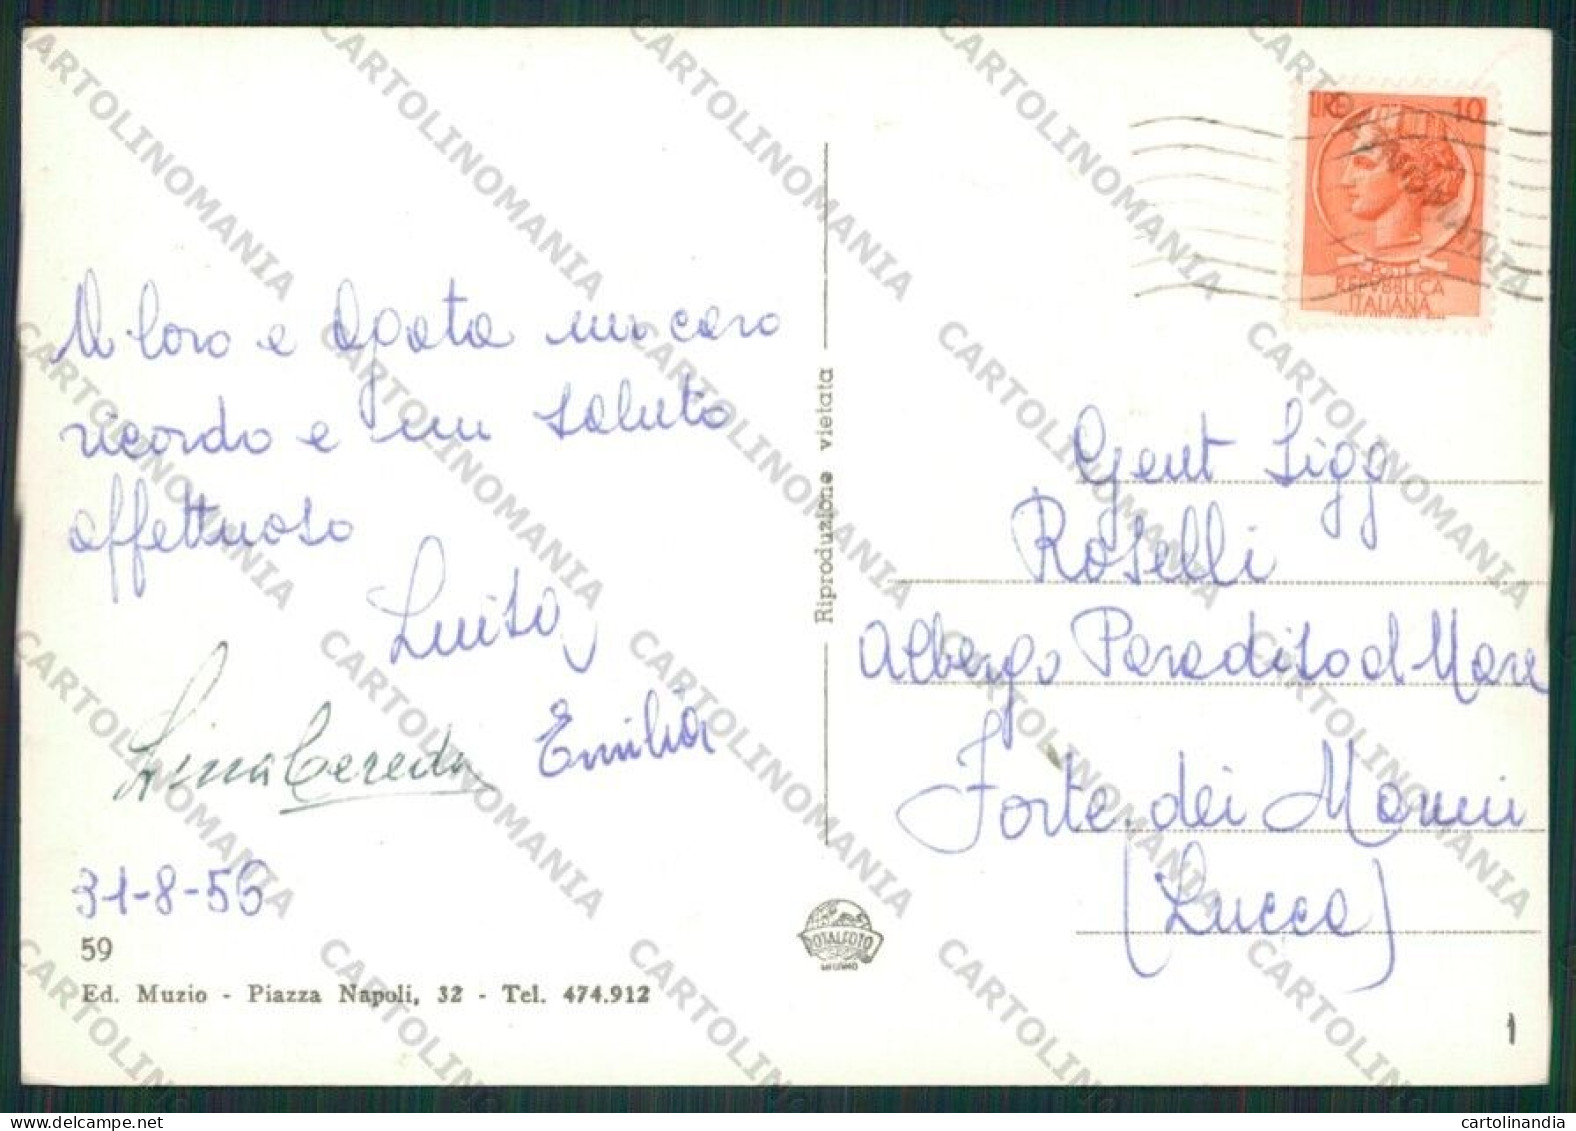 A loro e Agata un caro
ricordo e un saluto
affettuoso
Luisa
Emilia
Lina Cereda
31-8-56
59
Ed. Muzio - Piazza Napoli, 32 - Tel. 474.912
Riproduzione vietata
ROTALFOTO
MILANO
LIRE 10
POSTE
REPVBBLICA
ITALIANA
Gent Sigg
Roselli
Albergo Paradiso al Mare
Forte dei Marmi
(Lucca)
1
CARTOLINOMANIA
cartolinandia